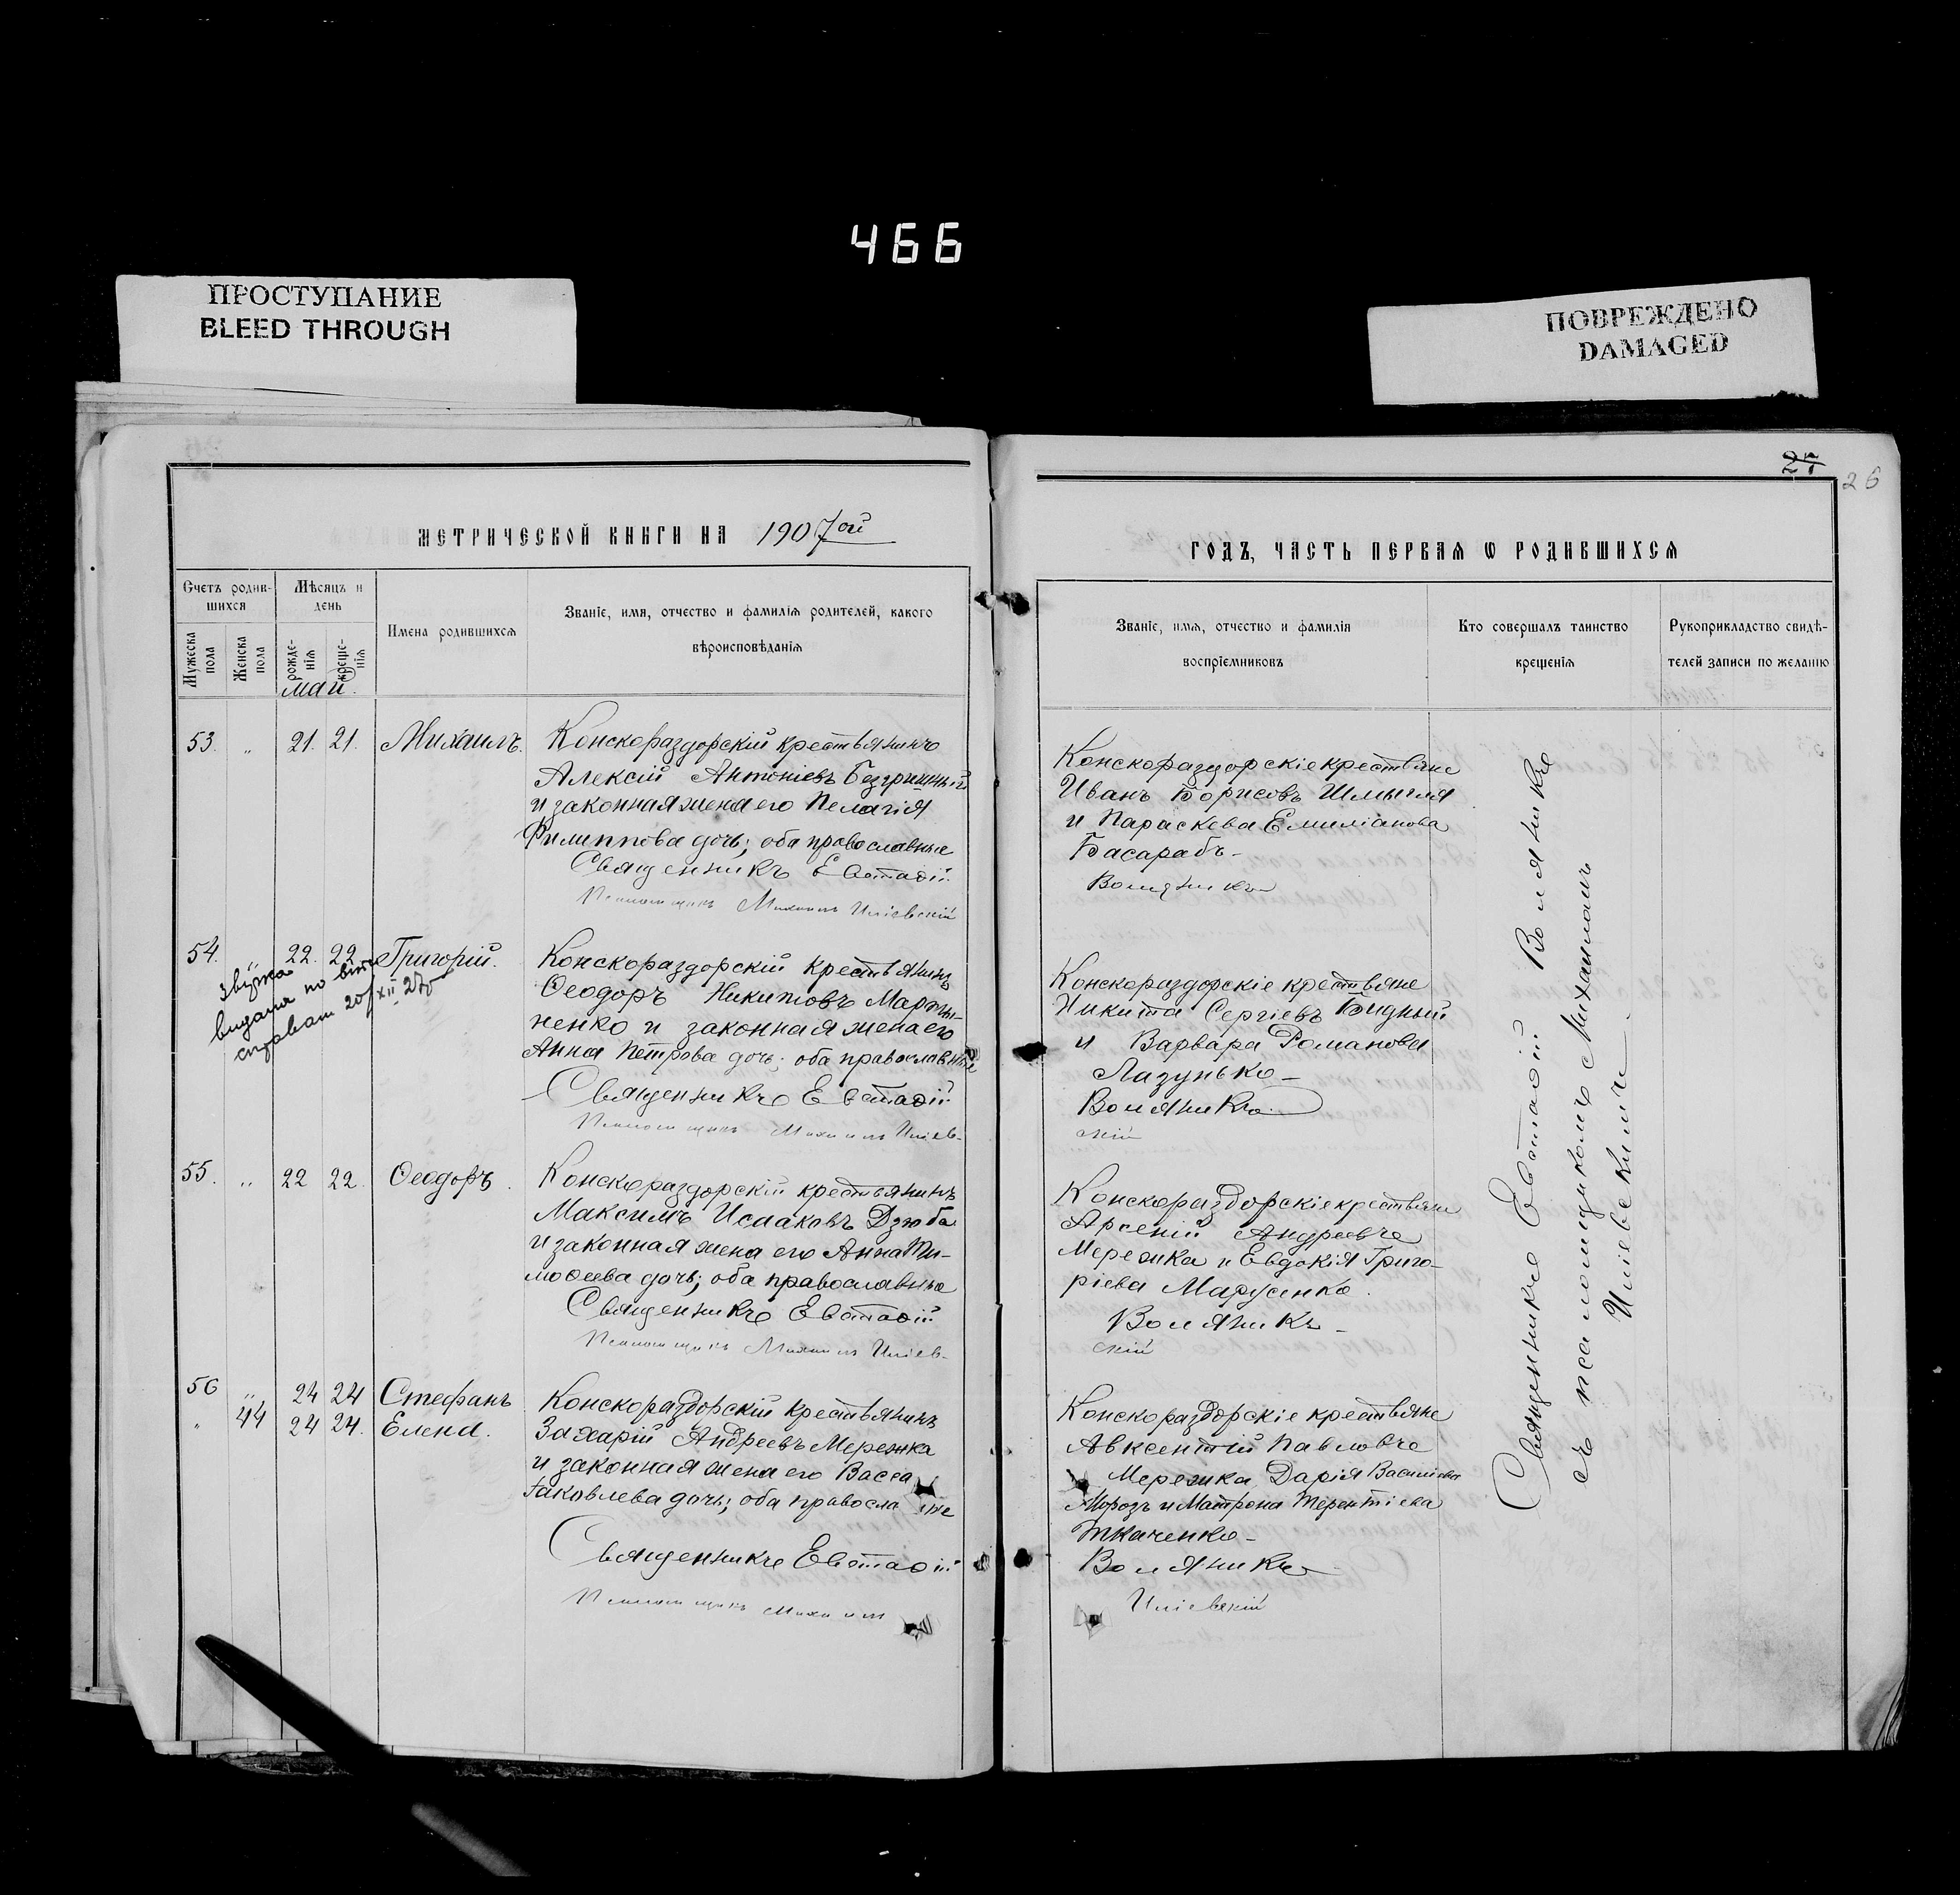 466
ПРОСТУПАНИЕ
BLEED THROUGH
ПОВРЕЖДЕНО
DAMAGED
МЕТРИЧЕСКОЙ КНИГИ НА 1907ой
Счетъ родив-
шихся
Мѣсяцъ и
день
Имена родившихся
Званіе, имя, отчество и фамилія родителей, какого
вѣроисповѣданія
Мужеска
пола
Женска
пола
рожде-
нія
креще-
нія
май.
53. „ 21. 21. Михаилъ.
Конскораздорскій крестьянинъ
Алексій Антоніевъ Безгришный
и законная жена его Пелагія
Филиппова дочь; оба православные
Священникъ Евстаѳій
Псаломщикъ Михаилъ Иліевскій
54. „ 22. 22. Григорій.
видана по
справкам 20/XII 27
Конскораздорскій крестьянинъ
Ѳеодоръ Никитовъ Марты-
ненко и законная жена его
Анна Петрова дочь; оба православные
Священникъ Евстаѳій
Псаломщикъ Михаилъ Иліев-
55. „ 22 22. Ѳеодоръ.
Конскораздорскій крестьянинъ
Максимъ Исааковъ Дзюба
и законная жена его Анна Ти-
моѳеева дочь; оба православные
Священникъ Евстаѳій
Псаломщикъ Михаилъ Иліев-
56 „ 24 24 Стефанъ
„ 44 24 24. Елена.
Конскораздорскій крестьянинъ
Захарій Андреевъ Мережка
и законная жена его Васса
Іаковлева дочь; оба правосла ые
Священникъ Евстаѳій
Псаломщикъ Михаилъ
27
26
ГОДЪ, ЧАСТЬ ПЕРВАЯ Ѡ РОДИВШИХСЯ
Званіе, имя, отчество и фамилія
воспріемниковъ
Кто совершалъ таинство
крещенія
Рукоприкладство свидѣ-
телей записи по желанію
Конскораздорскіе крестьяне
Иванъ Борисовъ Шмыгля
и Параскева Емиліанова
Басарабъ-
Воляникъ
Конскораздорскіе крестьяне
Никита Сергіевъ Бидный
и Варвара Романова
Лазунько-
Воляникъ
скій
Конскораздорскіе крестьяне
Арсеній Андреевъ
Мережка и Евдокія Григо-
ріева Марусенко.
Воляникъ-
скій
Конскораздорскіе крестьяне
Авксентій Павловъ
Мережка, Дарія Васильева
Морозъ и Матрона Терентіева
Ткаченко-
Воляникъ
Иліевскій
Священникъ Евстаѳій Воляникъ
съ псаломщикомъ Михаиломъ
Иліевскимъ.